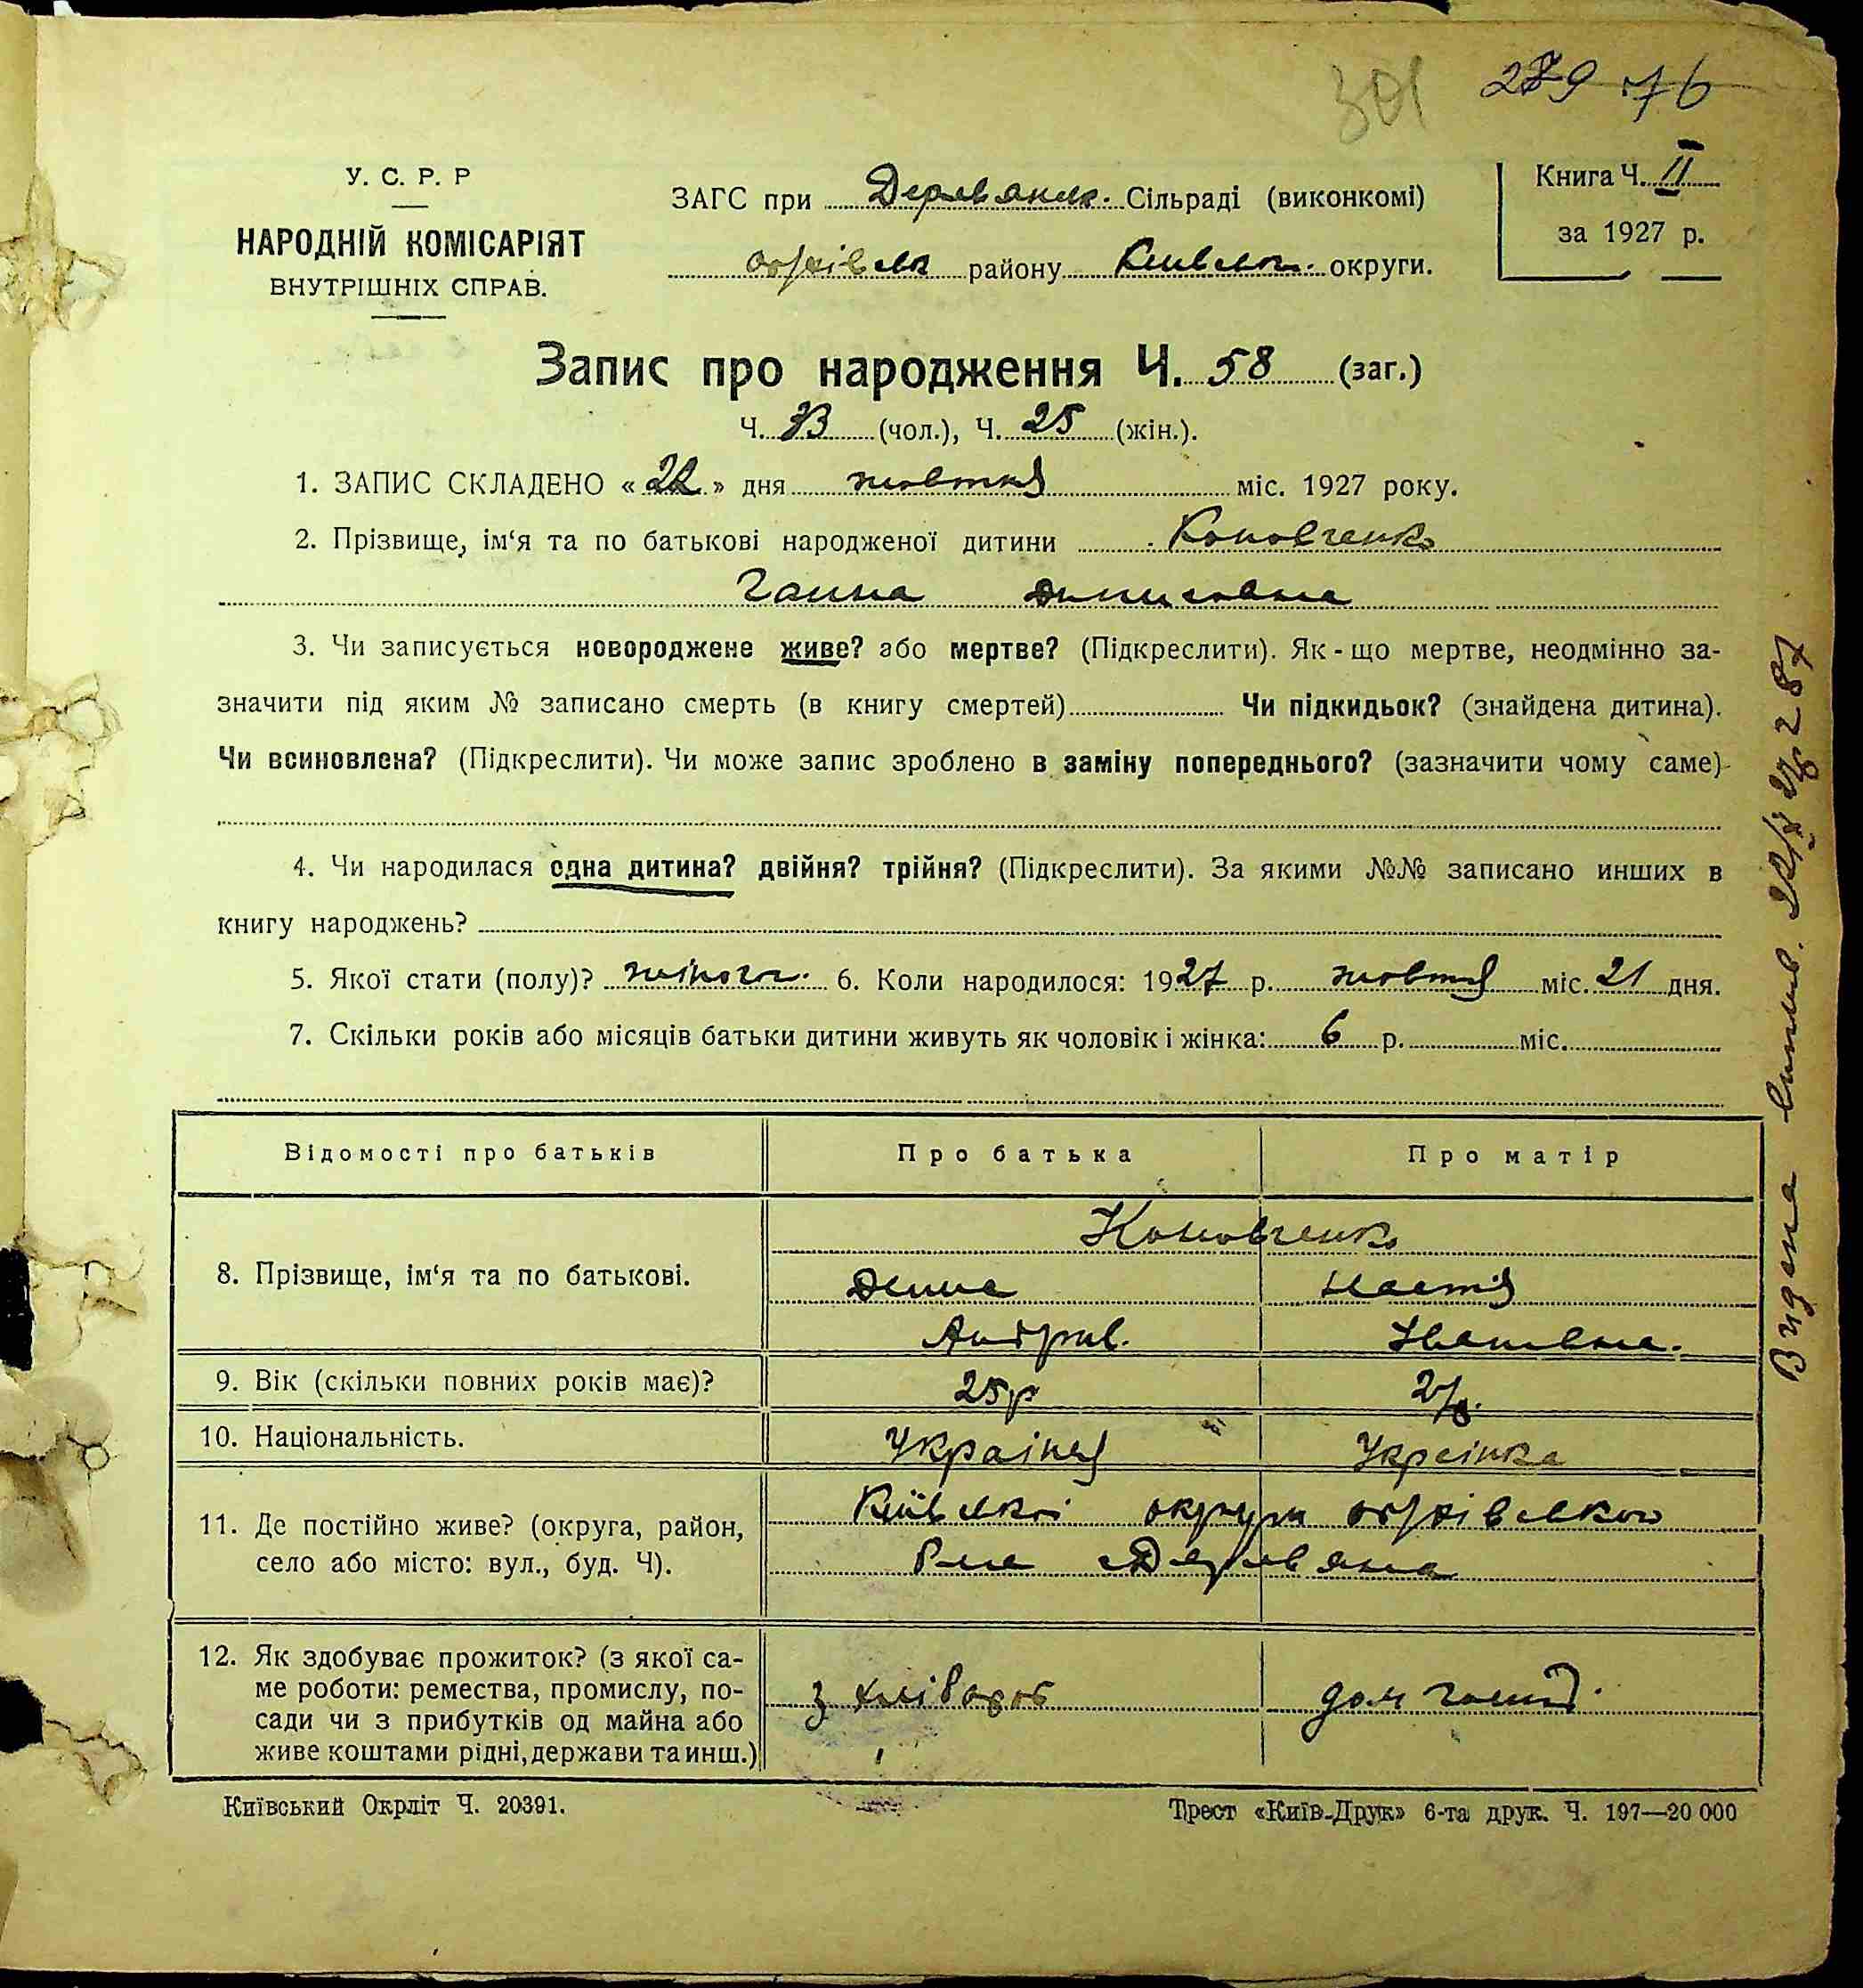 301 279 76
У. С. Р. Р
НАРОДНІЙ КОМІСАРІЯТ
ВНУТРІШНІХ СПРАВ.
ЗАГС при Деревянск. Сільраді (виконкомі)
району Київськ. округи.
Книга Ч. II
за 1927 р.
Запис про народження Ч. 58 (заг.)
Ч. 33 (чол.), Ч. 25 (жін.).
1. ЗАПИС СКЛАДЕНО « 22 » дня жовтня міс. 1927 року.
2. Прізвище, ім‘я та по батькові народженої дитини Коновченко
Ганна Денисовна
3. Чи записується новороджене живе? або мертве? (Підкреслити). Як-що мертве, неодмінно за-
значити під яким № записано смерть (в книгу смертей) Чи підкидьок? (знайдена дитина).
Чи всиновлена? (Підкреслити). Чи може запис зроблено в заміну попереднього? (зазначити чому саме)
4. Чи народилася одна дитина? двійня? трійня? (Підкреслити). За якими №№ записано инших в
книгу народжень?
5. Якої стати (полу)? жіноч. 6. Коли народилося: 1927 р. жовтня міс. 21 дня.
7. Скільки років або місяців батьки дитини живуть як чоловік і жінка: 6 р. міс.
Відомості про батьків Про батька Про матір
8. Прізвище, ім‘я та по батькові.
Коновченко
Денис Настя
Андриів. Іванівна.
9. Вік (скільки повних років має)? 25р
10. Національність. Украінец Украінка
11. Де постійно живе? (округа, район,
село або місто: вул., буд. Ч).
Київськоі округи
Деревяна
12. Як здобуває прожиток? (з якої са-
ме роботи: ремества, промислу, по-
сади чи з прибутків од майна або
живе коштами рідні, держави та инш.)
з хлібороб дом. госпд.
Київський Окрліт Ч. 20391.
Трест «Київ-Друк» 6-та друк. Ч. 197—20 000
Видана 287